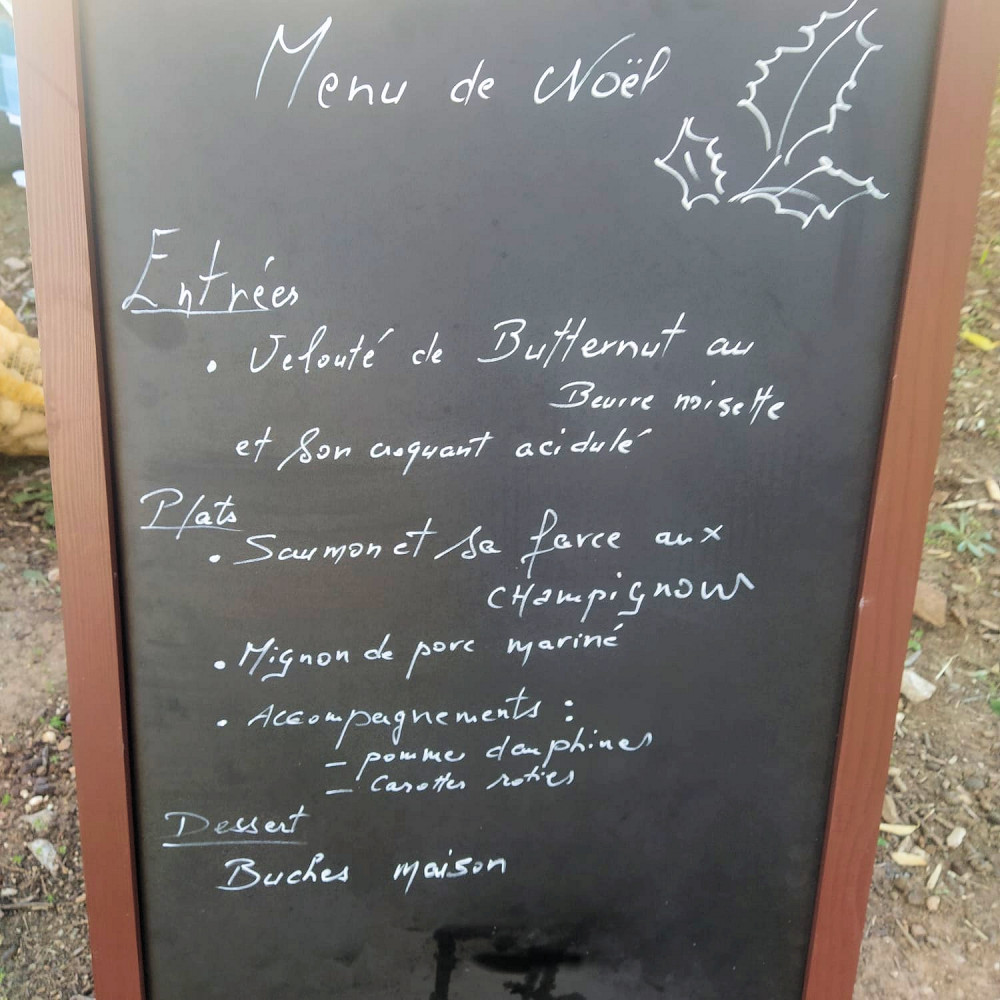 Menu de Noël
Entrées
• Velouté de Butternut au
Beurre noisette
et son croquant acidulé
Plats
• Saumon et sa farce aux
CHampignons
• Mignon de porc mariné
• Accompagnements :
- pomme dauphines
- Carottes roties
Dessert
Buches maison